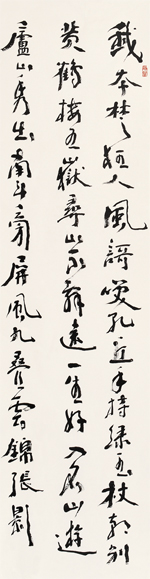 我本楚狂人鳳謌笑孔丘手持綠玉杖朝別
黄鶴樓五嶽尋仙不辭遠一生好入名山遊
廬山秀出南斗旁屏風九疊雲錦張影